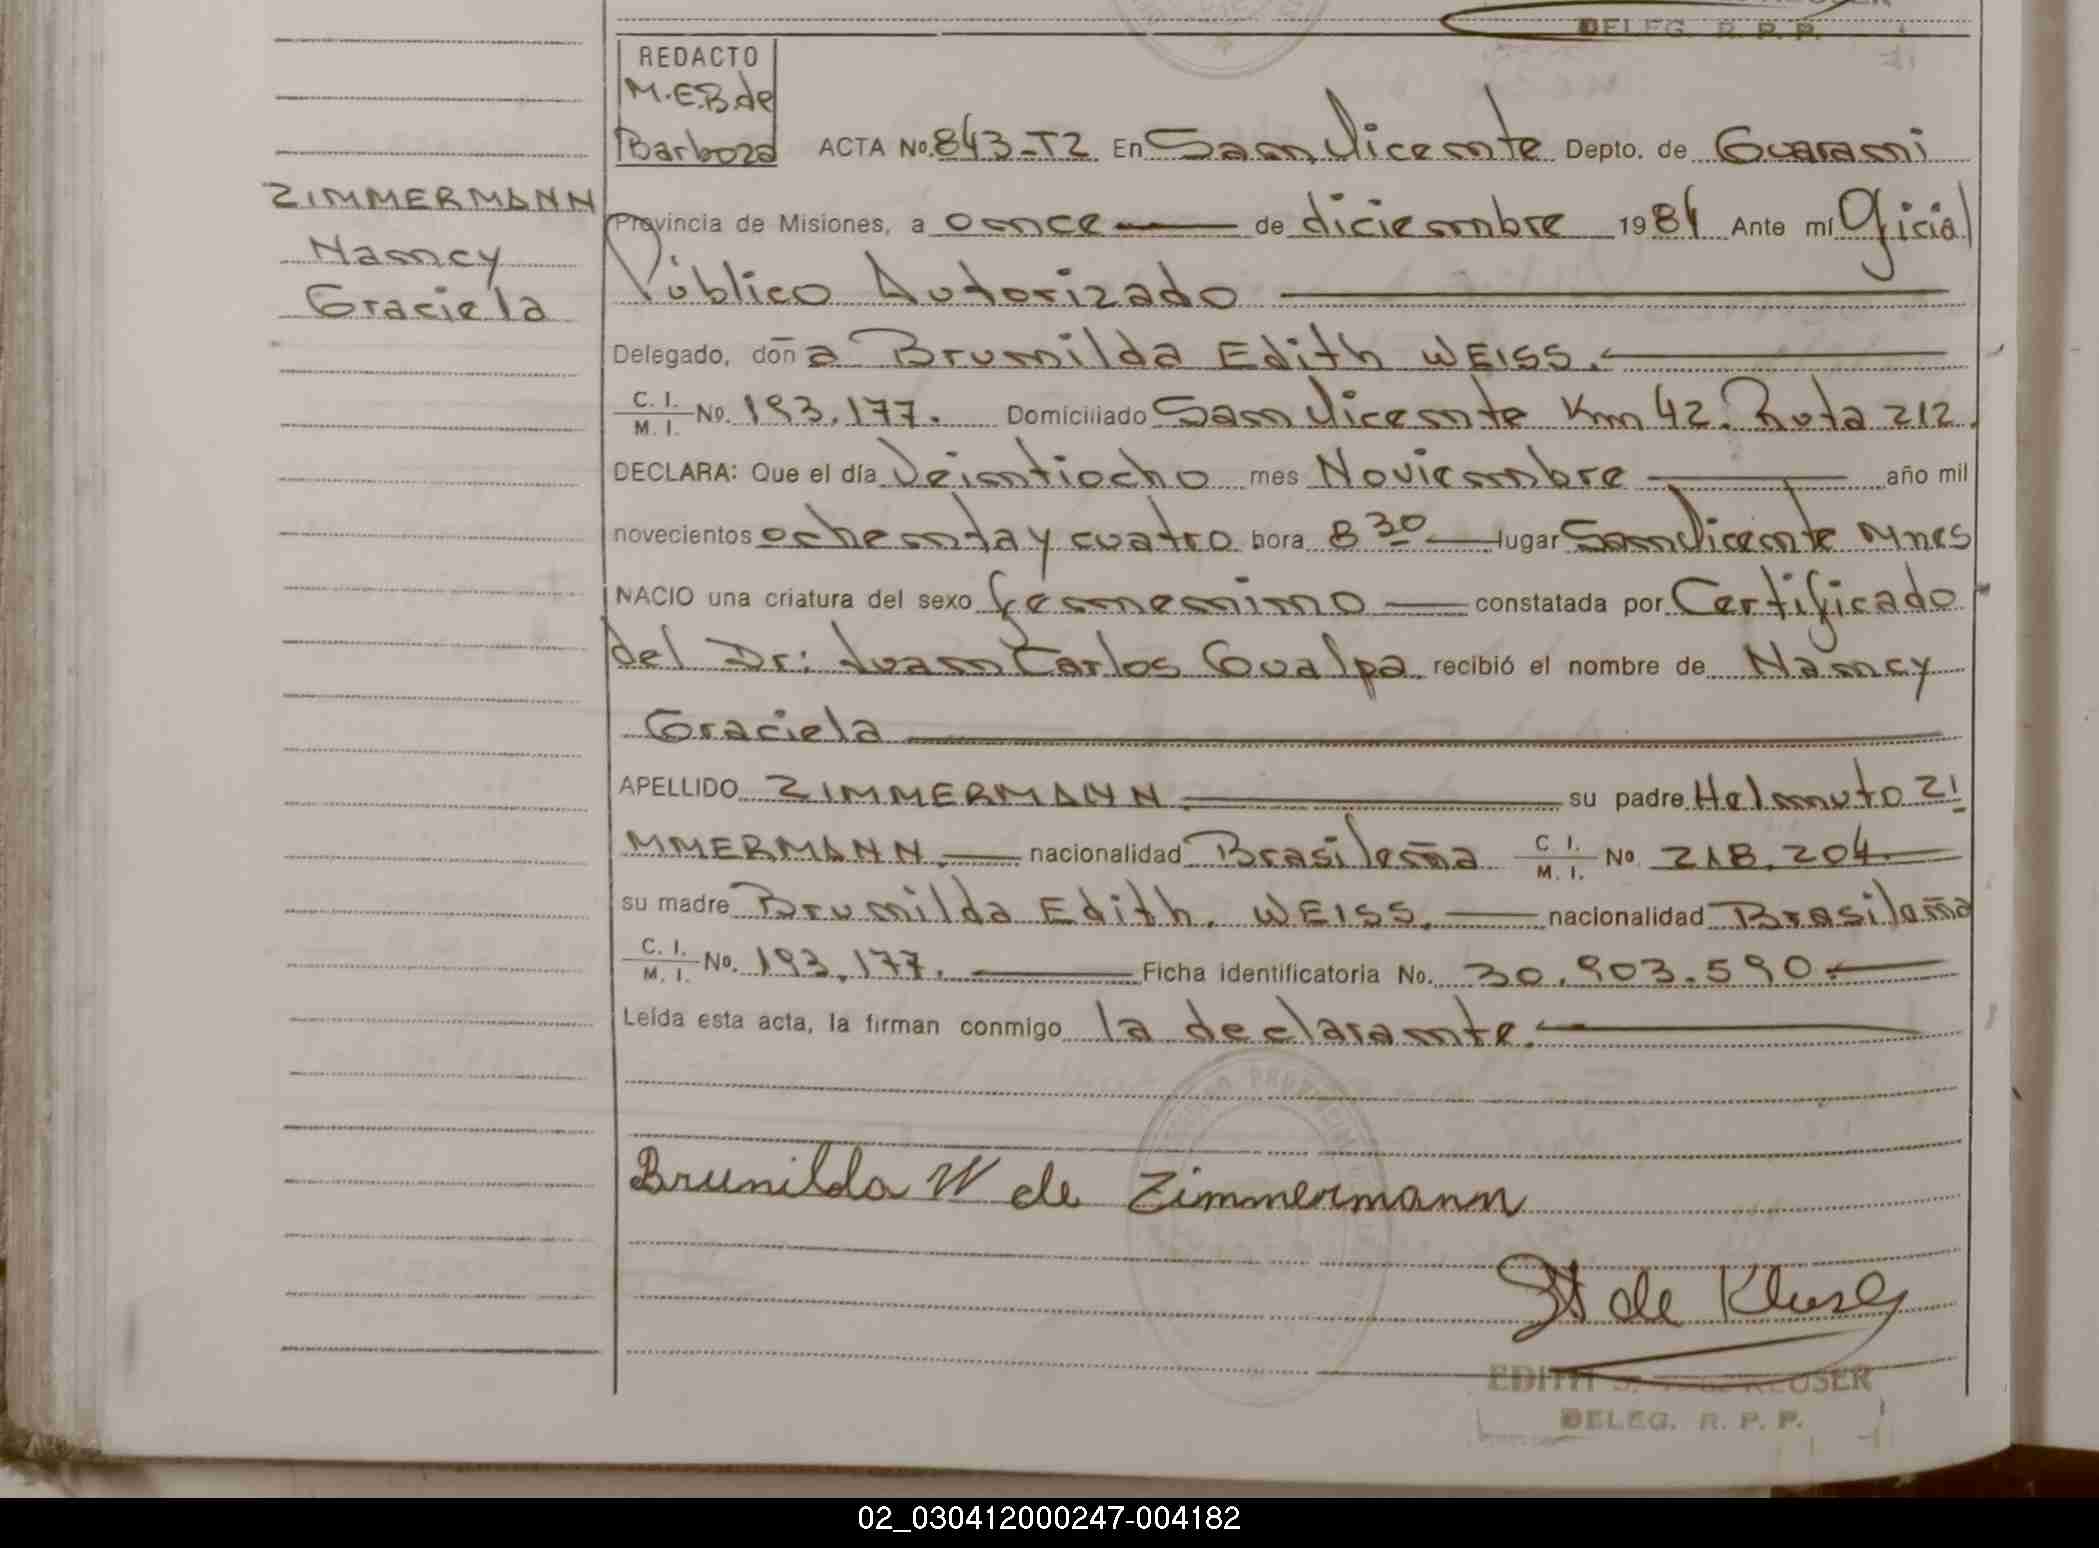 DELEG. R. P. P.
REDACTO
M.E.B. de
Barboza
ACTA No. 843-T2 En San Vicente Depto. de Guarani
ZIMMERMANN
Nancy
Graciela
Provincia de Misiones, a once de diciembre 1984 Ante mí Oficial
Público Autorizado
Delegado, doña Brunilda Edith WEISS.
C. I. / M. I. No. 193.177. Domiciliado San Vicente Km 42. Ruta 212.
DECLARA: Que el día Veintiocho mes Noviembre año mil
novecientos ochenta y cuatro hora 8 30 lugar San Vicente Mnes
NACIO una criatura del sexo femenino constatada por Certificado
del Dr: Juan Carlos Gualpa recibió el nombre de Nancy
Graciela
APELLIDO ZIMMERMANN su padre Helmuto ZI
MMERMANN. nacionalidad Brasileña C. I. / M. I. No 218.204
su madre Brunilda Edith. WEISS. nacionalidad Brasileña
C. I. / M. I. No. 193.177. Ficha identificatoria No. 30.903.590
Leída esta acta, la firman conmigo la declarante.
Brunilda W de Zimmermann
de Kluser
EDITH KLUSER
DELEG. R. P. P.
02_030412000247-004182